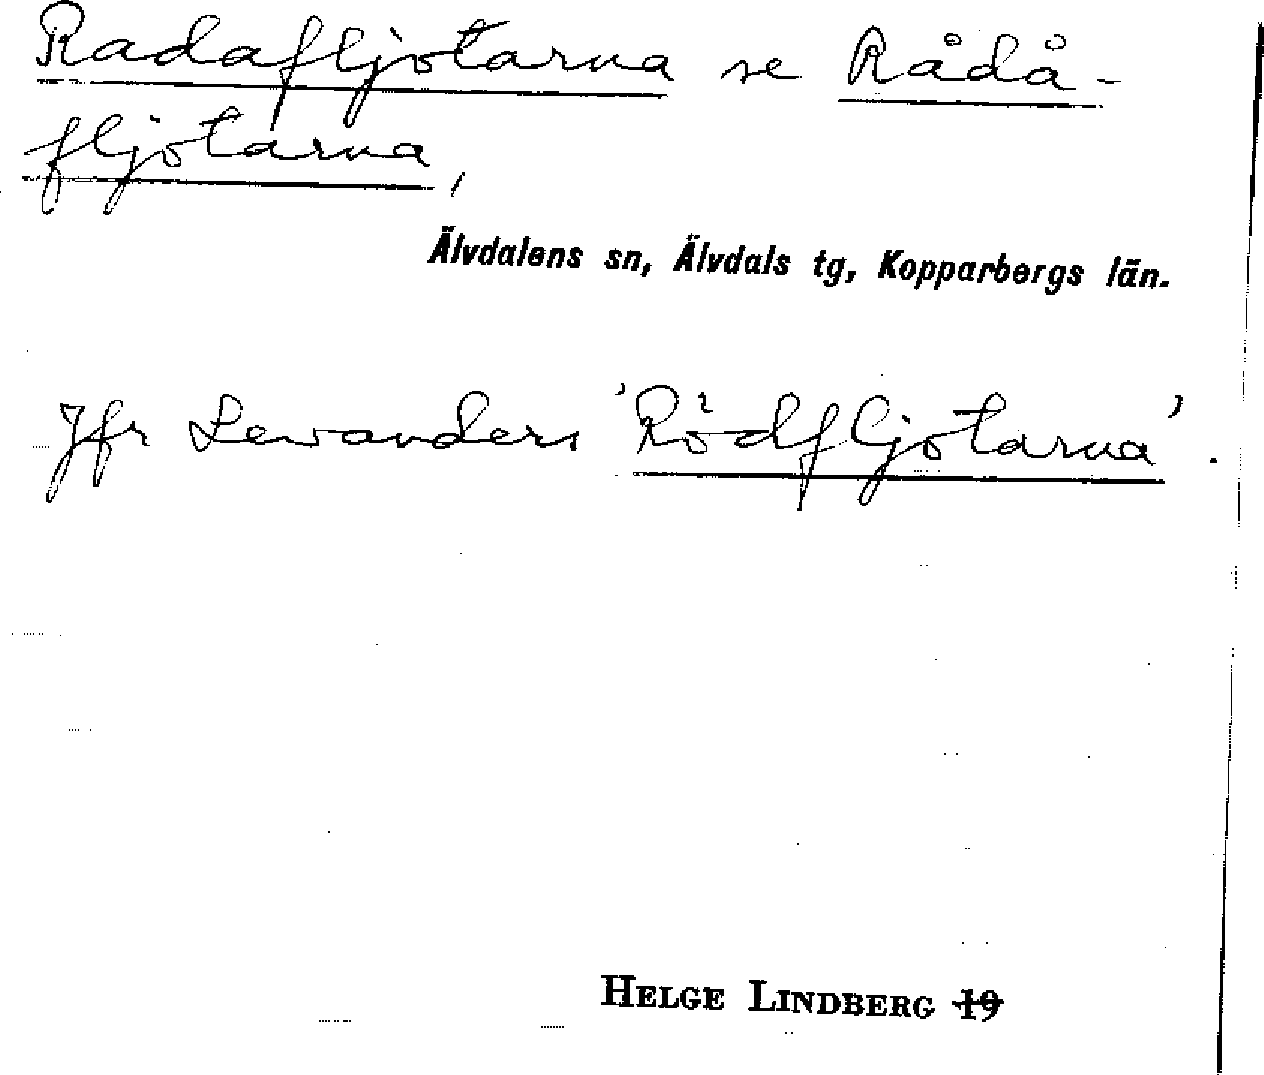 Radafljotarna se Rådå-
fljotarna,
Älvdalens sn, Älvdals tg, Kopparbergs län.
Jfr Levanders 'Rödfljotarna'.
HELGE LINDBERG 19